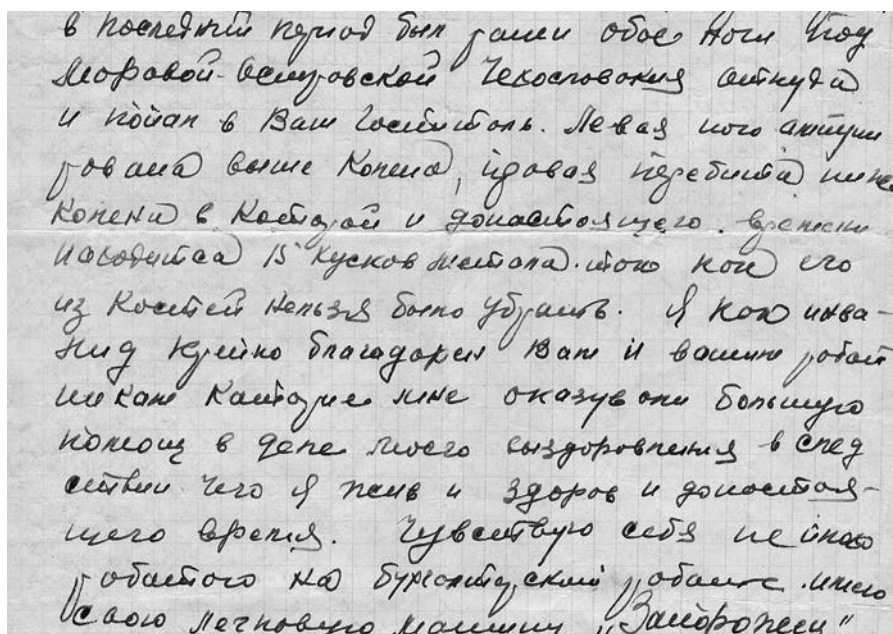 в последний период был ранен обое ноги под
Моровой-Островской Чехословокия откуда
и попал в Ваш Госпитоль. Левая нога ампути
рована выше Колена, правая перебита ниже
колена в Которой и донастоящего. времени
находится 15 кусков метала. так как его
из Костей нельзя было убрать. Я как инва-
лид Крейно благодарен Вам и вашим работ
никам Которие мне оказували большую
помощ в деле моего выздоровления в след
ствии чего я жив и здоров и донастоя-
щего время. Чувствую себя не плохо
работаю на бухгалтерский работе. имею
свою легковую машину „Запорожец"